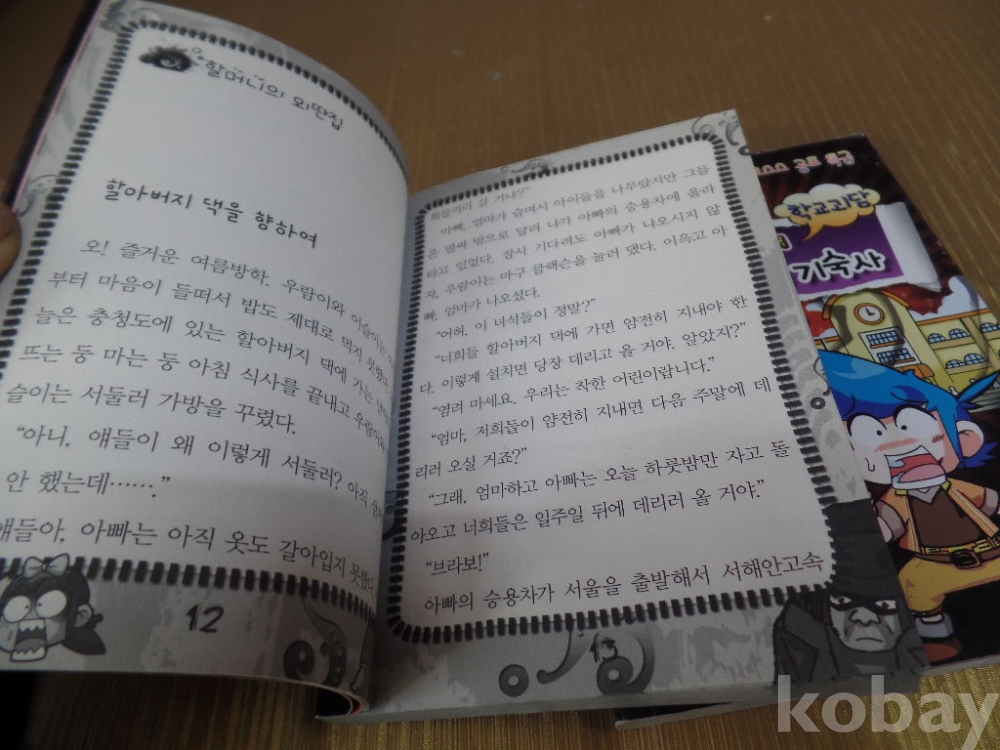 할머니의 외딴집
할아버지 댁을 향하여
오! 즐거운 여름방학. 우람이와 이슬이는
부터 마음이 들떠서 밥도 제대로 먹지 못했다.
늘은 충청도에 있는 할아버지 댁에 가는
뜨는 둥 마는 둥 아침 식사를 끝내고 우람이와
슬이는 서둘러 가방을 꾸렸다.
“아니, 얘들이 왜 이렇게 서둘러? 아직
안 했는데…….”
얘들아, 아빠는 아직 옷도 갈아입지 못했다.
12
희들끼리 갈 거니?”
아빠, 엄마가 슬며시 아이들을 나무랐지만 그들
은 벌써 밖으로 달려 나가 아빠의 승용차에 올라
타고 있었다. 잠시 기다려도 아빠가 나오시지 않
자, 우람이는 마구 클랙슨을 눌러 댔다. 이윽고 아
빠, 엄마가 나오셨다.
“어허, 이 녀석들이 정말?”
“너희들 할아버지 댁에 가면 얌전히 지내야 한
다. 이렇게 설치면 당장 데리고 올 거야. 알았지?”
“염려 마세요. 우리는 착한 어린이랍니다.”
“엄마, 저희들이 얌전히 지내면 다음 주말에 데
리러 오실 거죠?”
“그래, 엄마하고 아빠는 오늘 하룻밤만 자고 돌
아오고 너희들은 일주일 뒤에 데리러 올 거야.”
“브라보!”
아빠의 승용차가 서울을 출발해서 서해안고속
13
공포 특급
학교괴담
기숙사
kobay